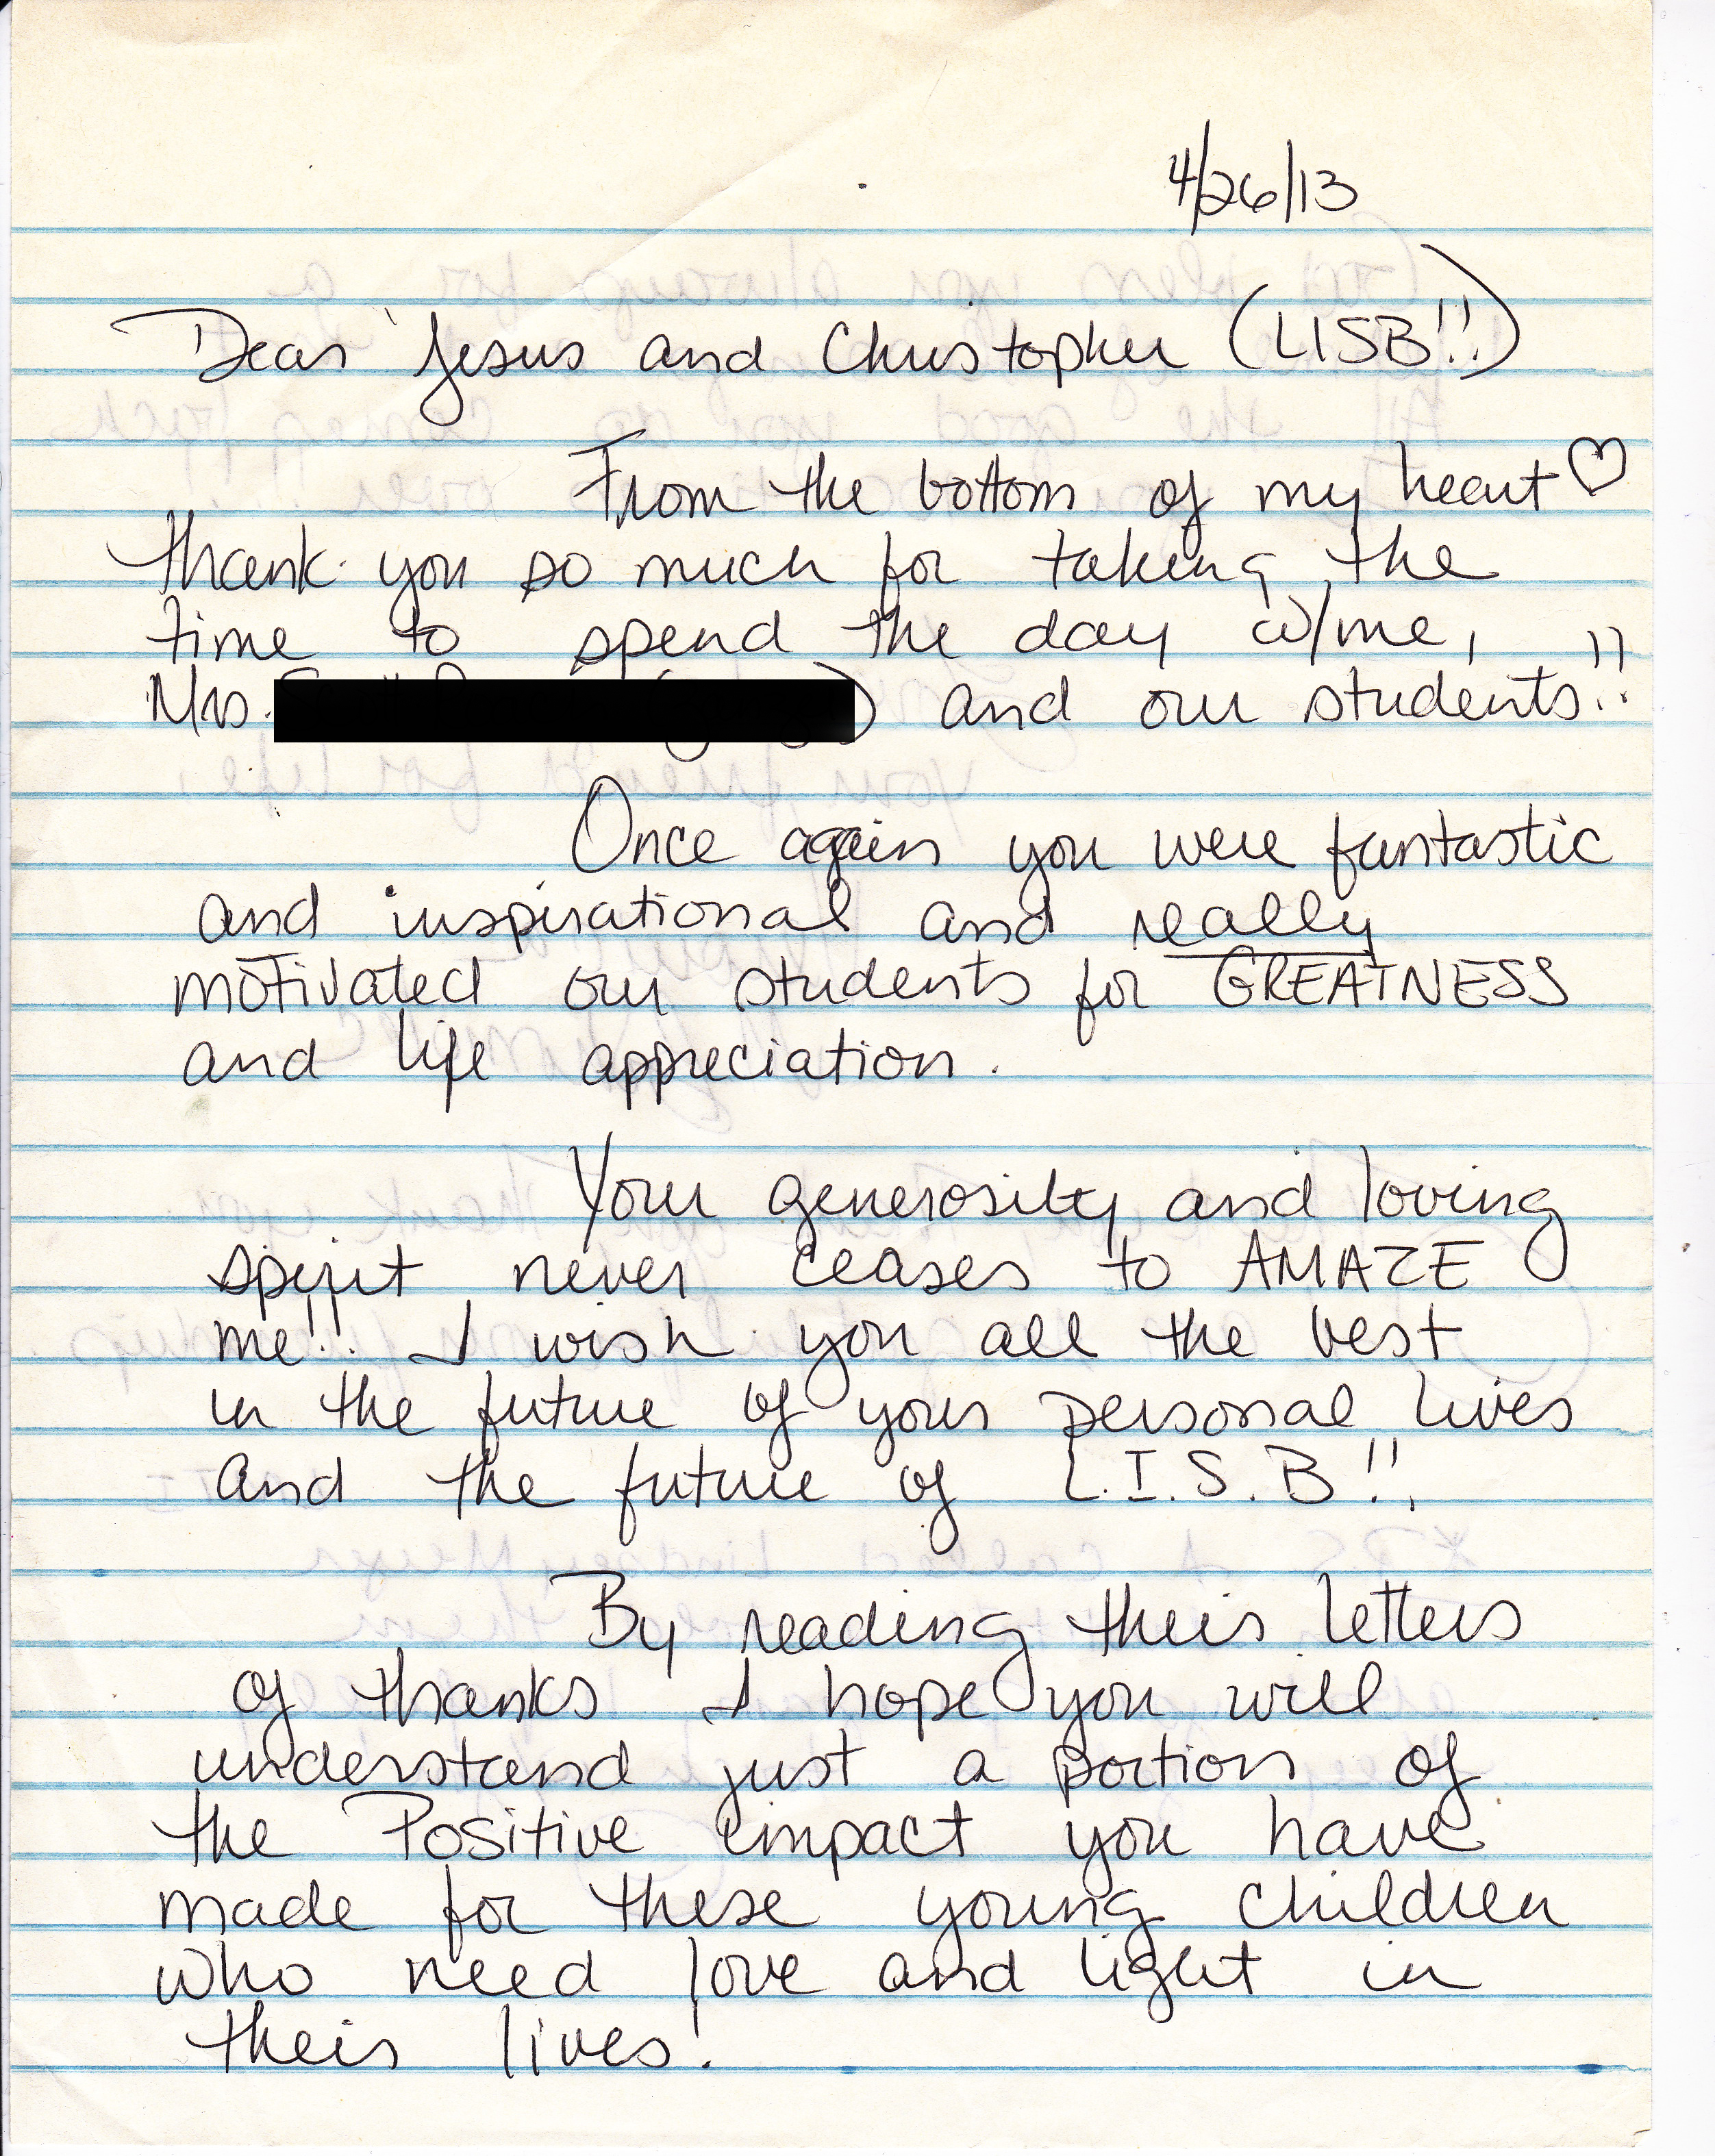 4/26/13
Dear Jesus and Christopher (LISB!!)
From the bottom of my heart♡
thank you so much for taking the
time to spend the day w/me,
Mrs. ) and our students!!
Once again you were fantastic
and inspirational and really
motivated our students for GREATNESS
and life appreciation.
Your generosity and loving
spirit never ceases to AMAZE
me!! I wish you all the best
in the future of your personal lives
and the future of L.I.S.B!!
By reading their letters
of thanks I hope you will
understand just a portion of
the Positive impact you have
made for these young children
who need love and light in
their lives!